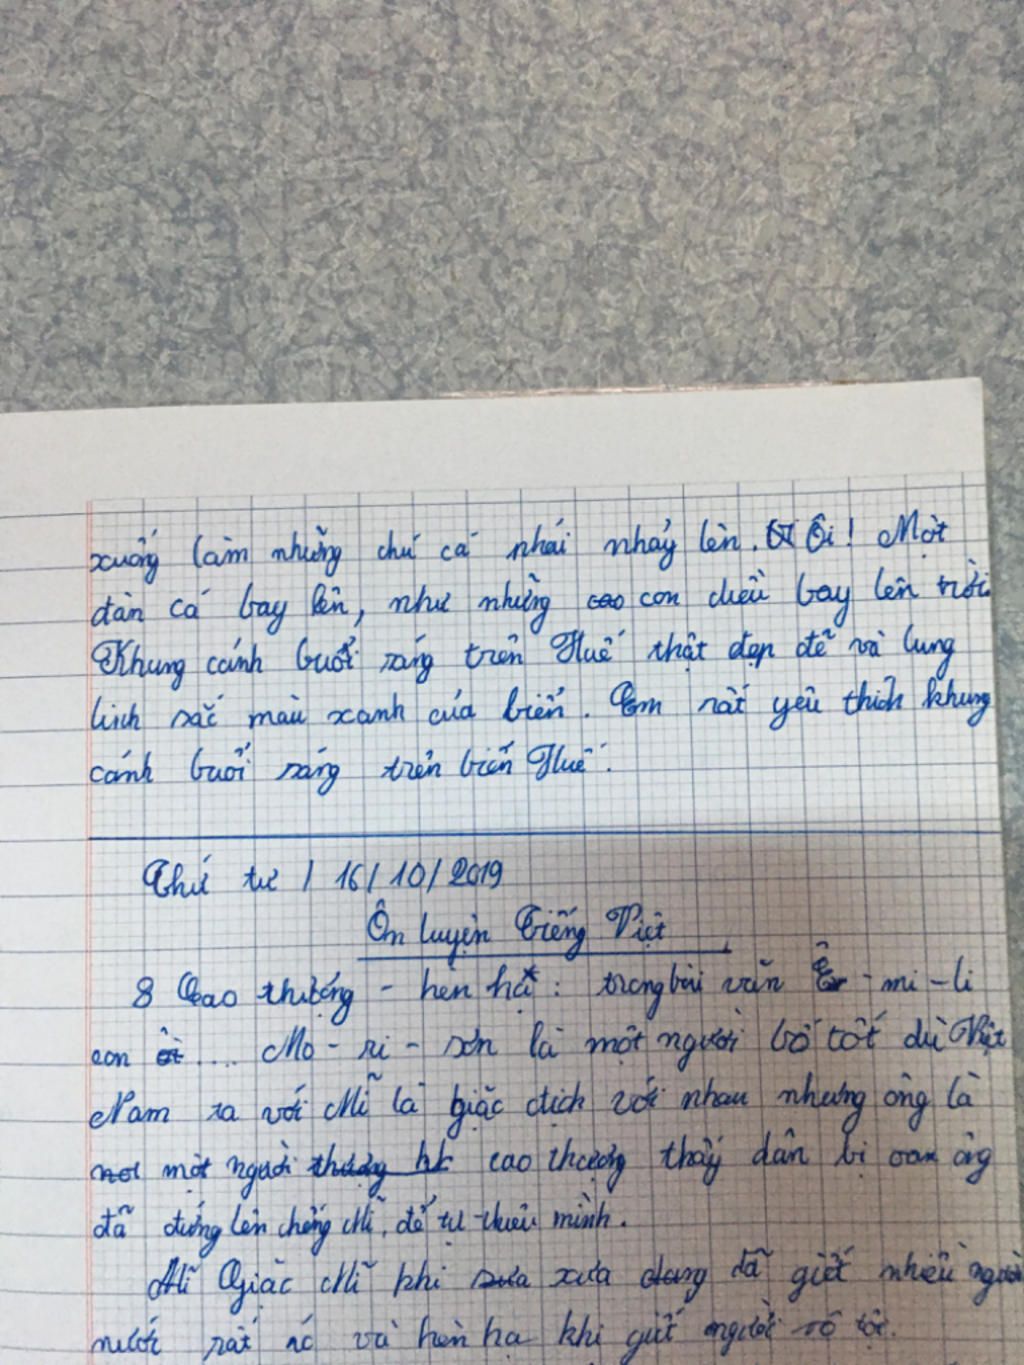 xuống làm những chú cá nhái nhảy lên. Ôi! Một
đàn cá bay lên, như những con diều bay lên trời.
Khung cảnh buổi sáng trên Huế thật đẹp đẽ và lung
linh sắc màu xanh của biển. Em rất yêu thích khung
cảnh buổi sáng trên biển Huế.
Thứ tư / 16/10/2019
Ôn luyện Tiếng Việt
8 Cao thượng - hèn hạ: trong bài văn Ê - mi - li
con .... Mo - ri - xơn là một người bố tốt dù Việt
Nam ta với Mĩ là giặc địch với nhau nhưng ông là
một người cao thượng thấy dân bị oan ông
đã đứng lên chống Mĩ, để tự thiêu mình.
Giặc Mĩ khi xưa đã giết nhiều người
nước rất ác và hèn hạ khi giết người vô tội.